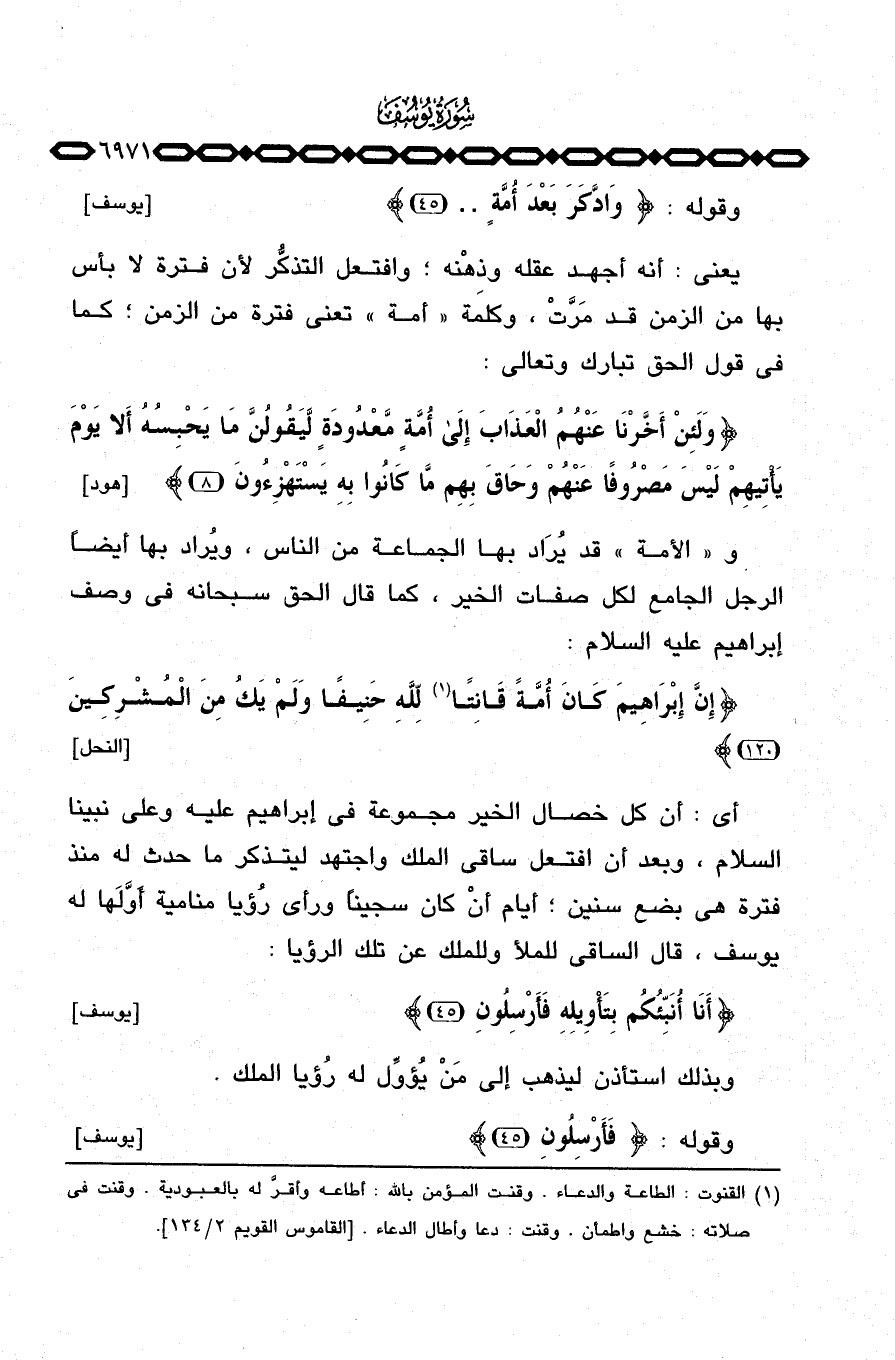 سُورَةُ يُوسُفَ
٦٩٧١
وقوله : ﴿ وَادَّكَرَ بَعْدَ أُمَّةٍ .. (٤٥) ﴾ [يوسف]
يعنى : أنه أجهد عقله وذهْنه ؛ وافتعل التذكُّر لأن فترة لا بأس
بها من الزمن قد مَرَّتْ ، وكلمة « أمة » تعنى فترة من الزمن ؛ كما
فى قول الحق تبارك وتعالى :
﴿ وَلَئِنْ أَخَّرْنَا عَنْهُمُ الْعَذَابَ إِلَىٰ أُمَّةٍ مَّعْدُودَةٍ لَّيَقُولُنَّ مَا يَحْبِسُهُ أَلَا يَوْمَ
يَأْتِيهِمْ لَيْسَ مَصْرُوفًا عَنْهُمْ وَحَاقَ بِهِم مَّا كَانُوا بِهِ يَسْتَهْزِءُونَ (٨) ﴾ [هود]
و « الأمة » قد يُرَاد بها الجماعة من الناس ، ويُراد بها أيضاً
الرجل الجامع لكل صفات الخير ، كما قال الحق سبحانه فى وصف
إبراهيم عليه السلام :
﴿ إِنَّ إِبْرَاهِيمَ كَانَ أُمَّةً قَانِتًا(١) لِّلَّهِ حَنِيفًا وَلَمْ يَكُ مِنَ الْمُشْرِكِينَ
(١٢٠) ﴾ [النحل]
أى : أن كل خصال الخير مجموعة فى إبراهيم عليه وعلى نبينا
السلام ، وبعد أن افتعل ساقى الملك واجتهد ليتذكر ما حدث له منذ
فترة هى بضع سنين ؛ أيام أنْ كان سجيناً ورأى رُؤيا منامية أَوَّلَها له
يوسف ، قال الساقى للملأ وللملك عن تلك الرؤيا :
﴿ أَنَا أُنَبِّئُكُم بِتَأْوِيلِهِ فَأَرْسِلُونِ (٤٥) ﴾ [يوسف]
وبذلك استأذن ليذهب إلى مَنْ يُؤوِّل له رُؤيا الملك .
وقوله : ﴿ فَأَرْسِلُونِ (٤٥) ﴾ [يوسف]
(١) القنوت : الطاعة والدعاء . وقنت المؤمن بالله : أطاعه وأقرَّ له بالعبودية . وقنت فى
صلاته : خشع واطمأن . وقنت : دعا وأطال الدعاء . [القاموس القويم ١٣٤/٢].